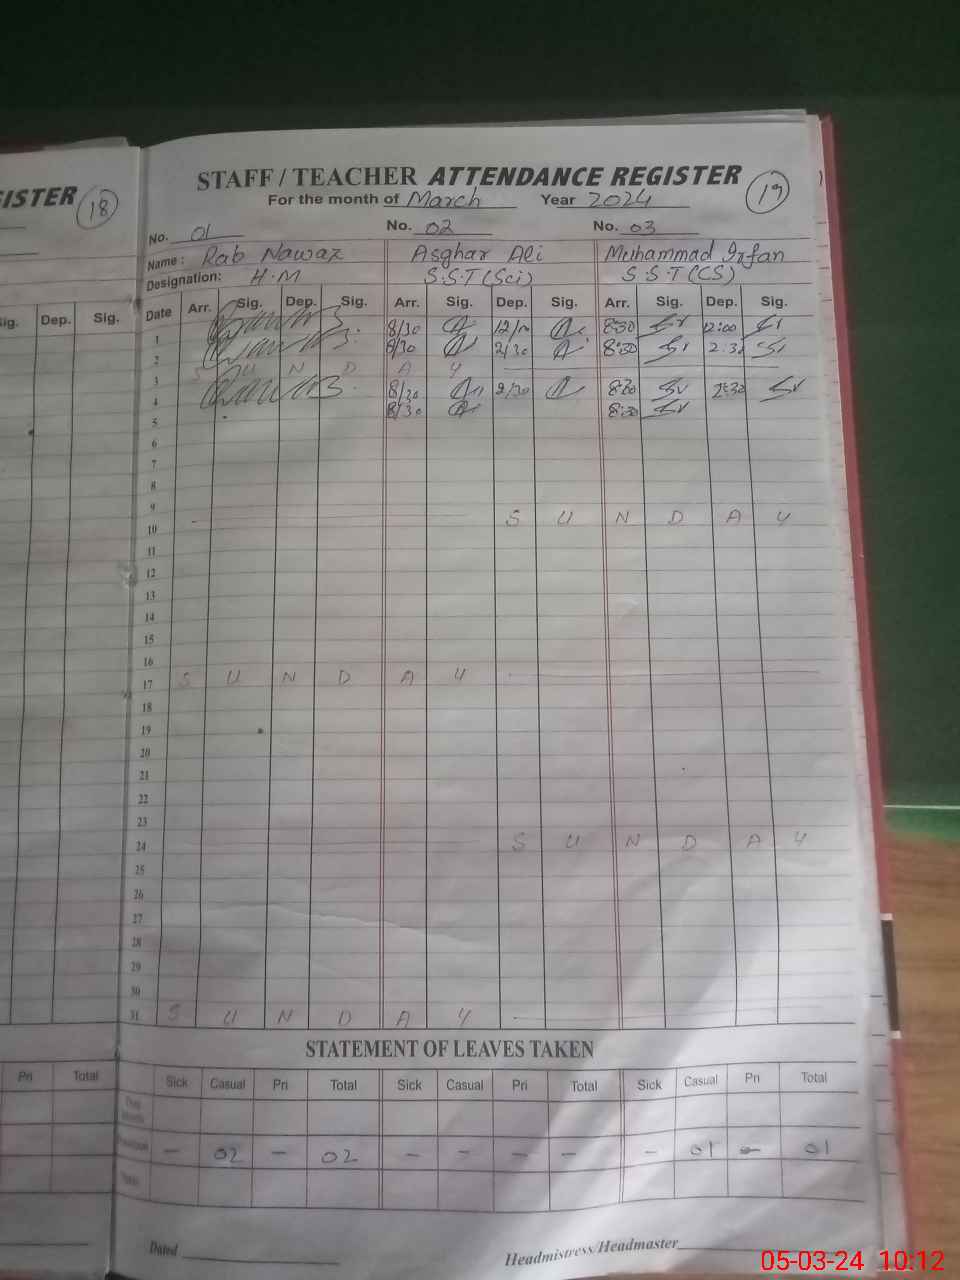 GISTER 18
STAFF / TEACHER ATTENDANCE REGISTER 19
For the month of March Year 2024
No. 01 No. 02 No. 03
Name : Rab Nawaz Asghar Ali Muhammad Irfan
Designation: H.M S.S.T (Sci) S.S.T (CS)
Sig. Dep. Sig. Date Arr. Sig. Dep. Sig. Arr. Sig. Dep. Sig. Arr. Sig. Dep. Sig.
1 8/30 8:30 12:00
2 8/30 2/30 8:30 2:30
3 S U N D A Y
4 8/30 2/30 8:30 2:30
5 8/30 8:30
6
7
8
9
10 S U N D A Y
11
12
13
14
15
16
17 S U N D A Y
18
19
20
21
22
23
24 S U N D A Y
25
26
27
28
29
30
31 S U N D A Y
STATEMENT OF LEAVES TAKEN
Pri Total Sick Casual Pri Total Sick Casual Pri Total Sick Casual Pri Total
- 02 - 02 - - - - - 01 - 01
Dated
Headmistress/Headmaster
05-03-24 10:12